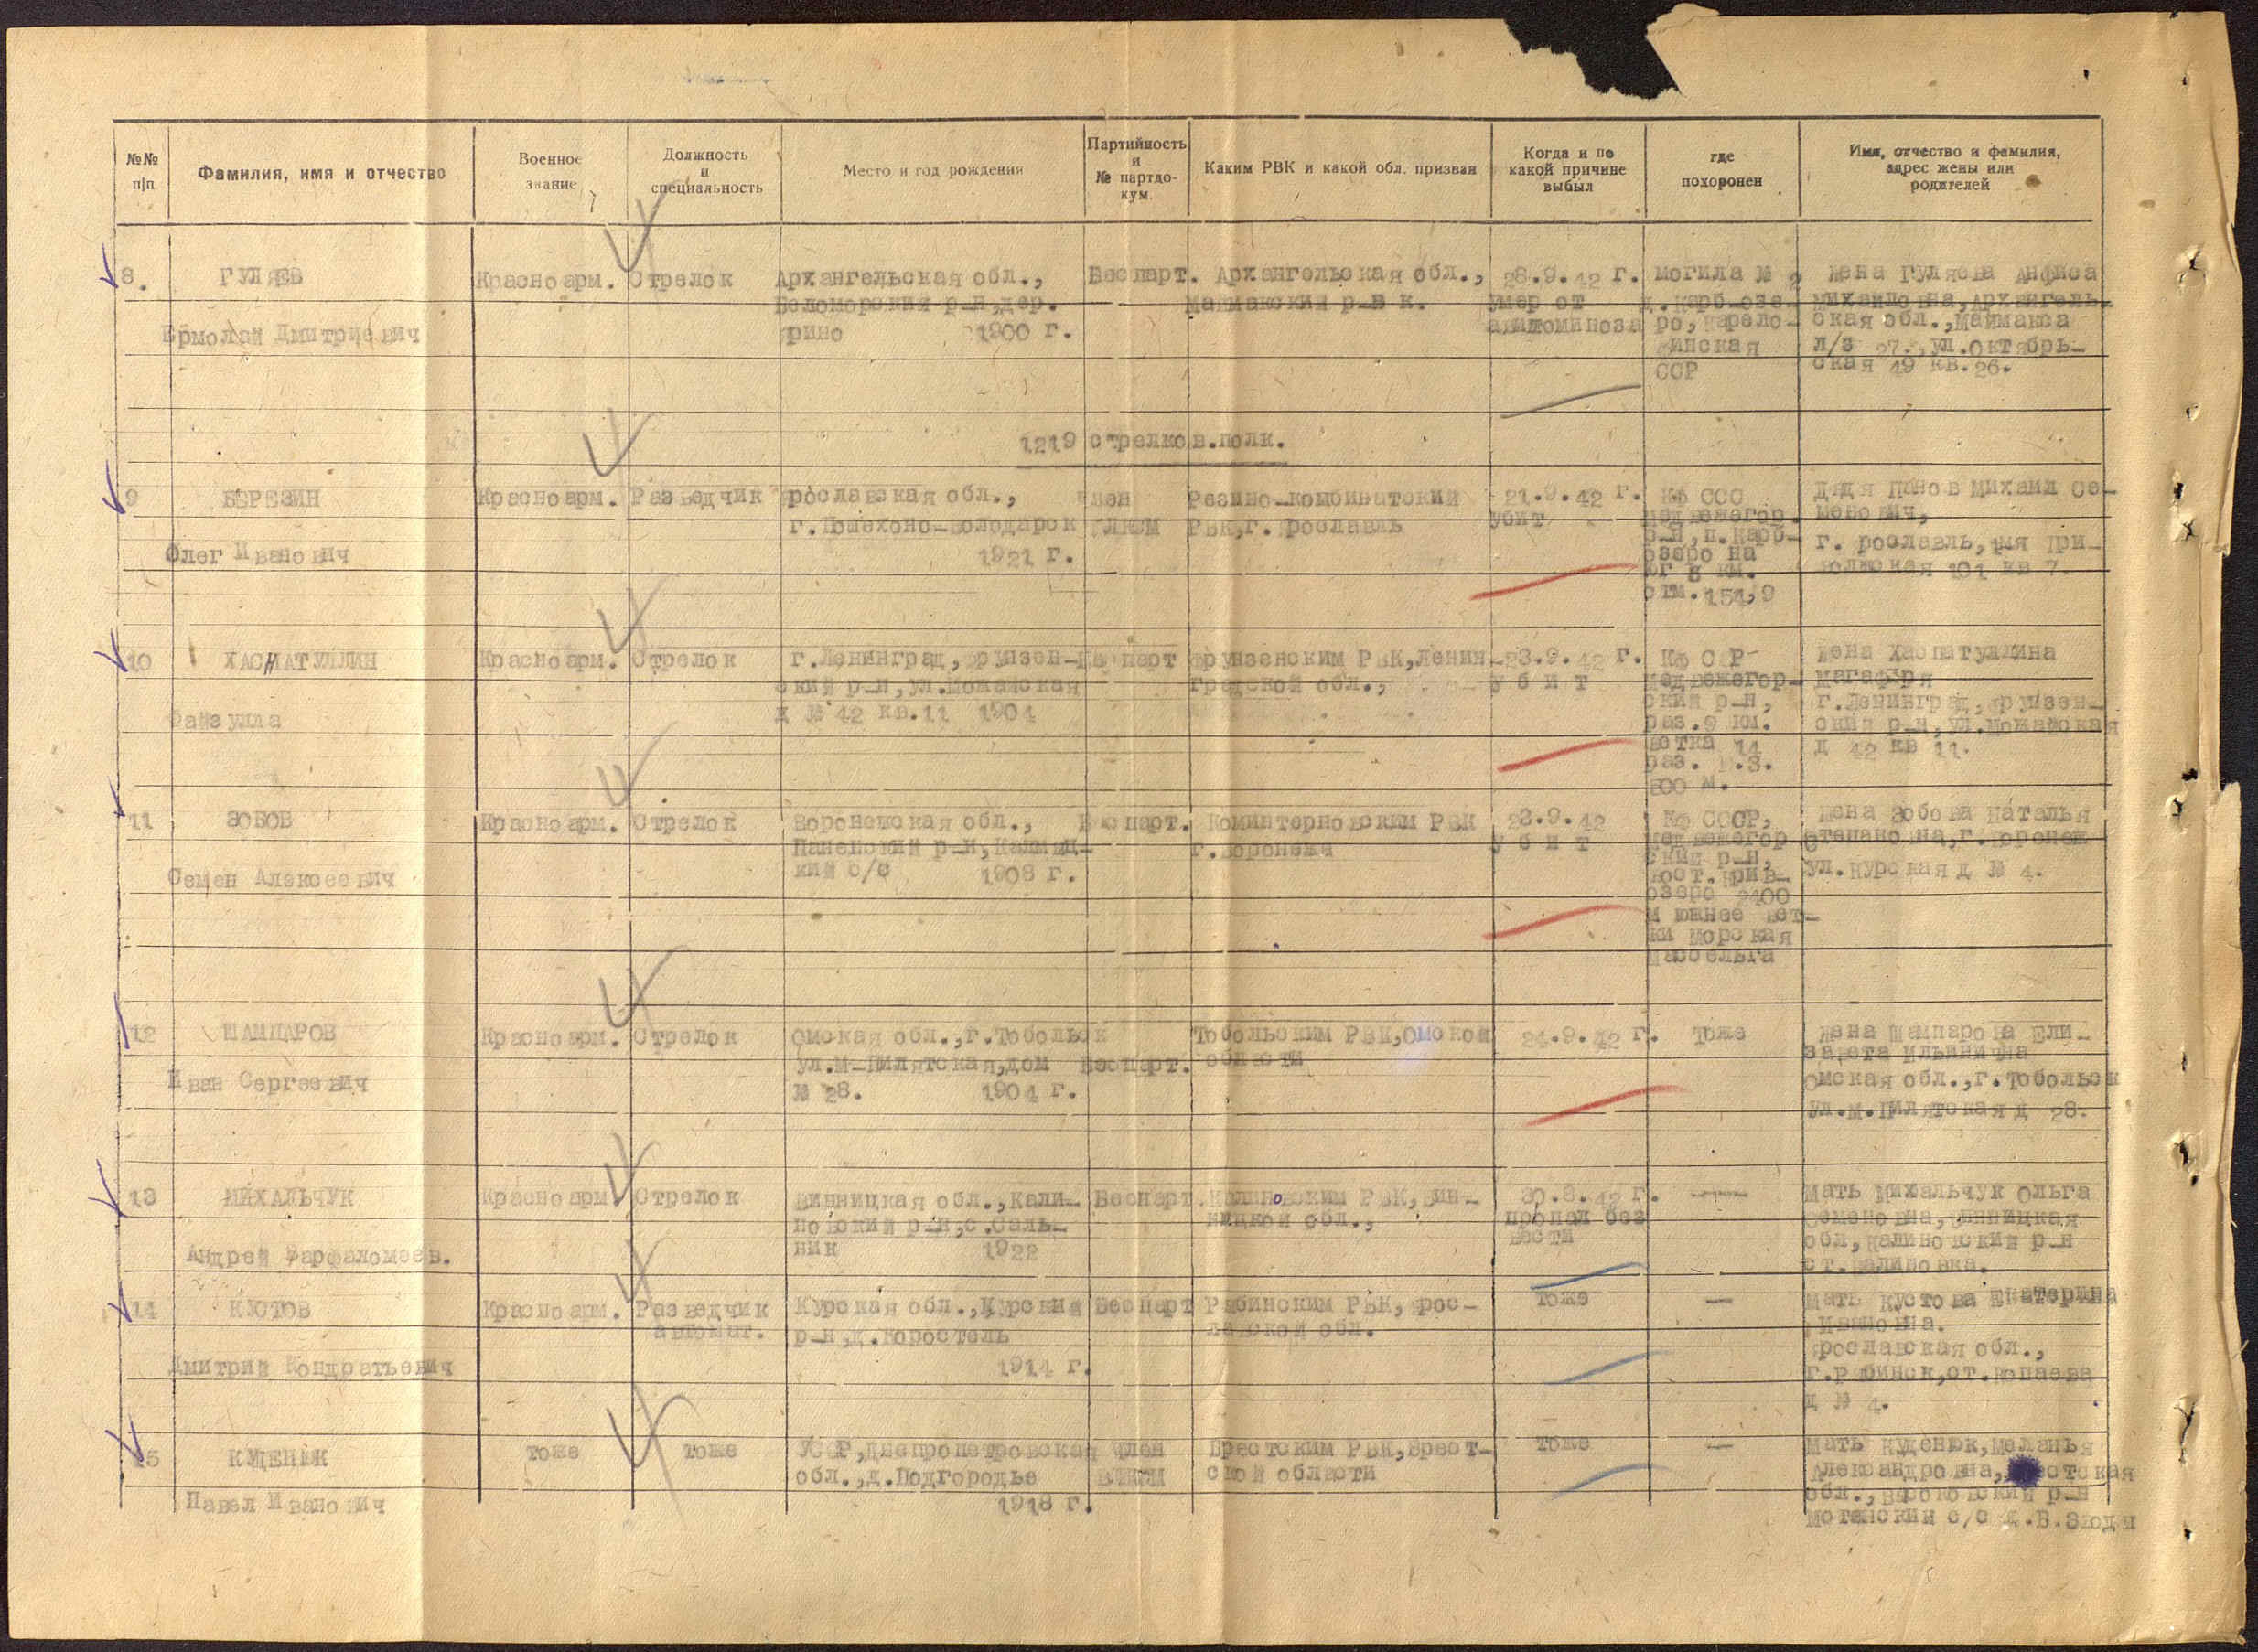 №№ п/п
Фамилия, имя и отчество
Военное звание
Должность и специальность
Место и год рождения
Партийность и № партдокум.
Каким РВК и какой обл. призван
Когда и по какой причине выбыл
где похоронен
Имя, отчество и фамилия, адрес жены или родителей
8.
ГУЛЯЕВ
Ермолай Дмитриевич
Красноарм.
Стрелок
Архангельская обл.,
Беломорский р-н, дер.
рино 1900 г.
Беспарт.
Архангельская обл.,
Маймакский р-в к.
28.9.42 г.
умер от
могила № 2
д. Карб-озе-
ро, Карело-
финская
ССР
Жена Гуляева Анфиса
Михайловна, Архангель-
ская обл., Маймакса
л/з 27, ул. Октябрь-
ская 49 кв.26.
1219 стрелков.полк.
9
БЕРЕЗИН
Олег Иванович
Красноарм.
Разведчик
рославская обл.,
г.Пошехоно-Володарск
1921 г.
член
ВЛКСМ
Резино-комбинатский
РВК, г. рославль
21.9.42 г.
убит
КФ ССС
медвежегор.
р-н, п. Карб-
озеро на
юг 8 км.
отм. 154,9
Дядя Панов Михаил Се-
менович,
г. рославль, 1мя При-
волжская 101 кв 7.
10
ХАСНАТУЛЛИН
Файзулла
Красноарм.
Стрелок
г.Ленинград, Фрунзен-
ский р-н, ул.Можайская
д № 42 кв.11 1904
Беспарт
Фрунзенским РВК, Ленин-
градской обл.,
23.9.42 г.
у б и т
КФ ССР
медвежегор-
ский р-н,
раз. 9 км.
ветка 14
раз. .З.
500 м.
Жена Хаснатуллина
г.Ленинград, Фрунзен-
ский р-н, ул.Можайская
д 42 кв 11.
11
ЗОБОВ
Семен Алексеевич
Красноарм.
Стрелок
Воронежская обл.,
Паненский р-н,
кий с/с 1908 г.
Беспарт.
Коминтерновским РВК
г.Воронежа
23.9.42
у б и т
КФ СССР,
медвежегор
ский р-н,
вост. Крив-
озеро 2400
м южнее вет-
ки Морская
Массельга
Жена Зобова Наталья
Степановна, г. Воронеж
ул. Курская д № 4.
12
ШАМПАРОВ
Иван Сергеевич
Красноарм.
Стрелок
Омская обл., г.Тобольск
ул.М-Пилятская, дом
№ 28. 1904 г.
Беспарт.
Тобольским РВК, Омской
области
24.9.42 г.
Тоже
Жена Шампарова Ели-
завета Ильинична
Омская обл., г.Тобольск
ул.М.Пилятская д 28.
13
МИХАЛЬЧУК
Андрей Варфаломеев.
Красноарм.
Стрелок
Винницкая обл., Кали-
новский р-н, с.Саль-
ник 1922
Беспарт.
Калиновским РВК, Вин-
ницкой обл.,
30.8.42 г.
пропал без
вести
—
Мать Михальчук Ольга
Семеновна, Винницкая
обл, Калиновский р-н
ст.Калиновка.
14
КУСТОВ
Дмитрий Кондратьевич
Красноарм.
Разведчик
автомат.
Курская обл., Курский
р-н, д.Коростель
1914 г.
Беспарт
Рыбинским РВК, Ярос-
лавской обл.
Тоже
—
Мать Кустова Екатерина
Ивановна.
рославская обл.,
г.Рыбинск, ст.Копаева
д № 4.
15
КУДЕНЮК
Павел Иванович
Тоже
Тоже
УССР, Днепропетровская
обл., д.Подгородье
1918 г.
член
ВЛКСМ
Брестским РВК, Брест-
ской области
Тоже
—
Мать Куденюк, Меланья
Александровна, Брестская
обл., Высоковский р-н
с/с д.В.